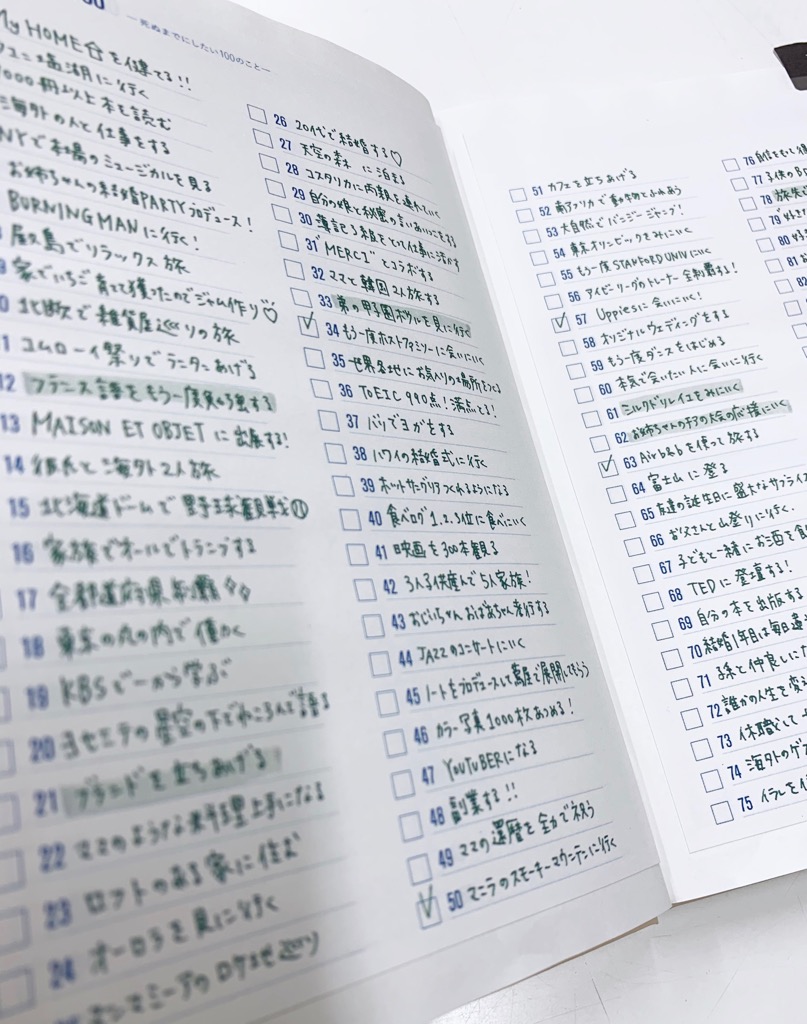 ―死ぬまでにしたい100のこと―
My HOME 台を建てる!!
塩湖に行く
000冊以上本を読む
海外の人と仕事をする
NYで本場のミュージカルを見る
お姉ちゃんの結婚PARTYプロデュース!
BURNING MANに行く!
屋久島でリラックス旅
家でいちご育てて獲ったのでジャム作り♡
北欧で雑貨屋巡りの旅
コムローイ祭りでランタンあげる
12 フランス語をもう一度勉強する
13 MAISON ET OBJET に出展する!
14 彼氏と海外2人旅
15 北海道ドームで野球観戦
16 家族でオールでトランプする
17 全都道府県制覇
18 東京の丸の内で働く
19 KBSで一から学ぶ
20 ヨセミテの星空の下でねころんで語る
21 ブランドを立ちあげる
22 ママのような料理上手になる
23 ロフトのある家に住む
24 オーロラを見に行く
マンマミーアのロケ地巡り
26 20代で結婚する♡
27 天空の森に泊まる
28 コスタリカに両親を連れていく
29 自分の娘と秘密の言いあいこをする
30 簿記3級をとって仕事に活かす
31 "MERCI"とコラボする
32 ママと韓国2人旅する
33 弟の甲子園ボウルを見に行く
34 もう一度ホストファミリーに会いにいく
35 世界各地にお気入りの場所をつくる
36 TOEIC 990点!満点とる!
37 バリでヨガをする
38 ハワイの結婚式に行く
39 ホットサングリアつくれるようになる
40 食べログ1.2.3位に食べにいく
41 映画を300本観る
42 3人子供産んで5人家族!
43 おじいちゃんおばあちゃん孝行する
44 JAZZのコンサートにいく
45 ノートをプロデュースして蔦屋で展開してもらう
46 カラー写真1000枚あつめる!
47 YOUTUBERになる
48 副業する!!
49 ママの還暦を全力で祝う
50 マニラのスモーキーマウンテンに行く
51 カフェを立ちあげる
52 南アフリカで動物とふれあう
53 大自然でバンジージャンプ!
54 東京オリンピックをみにいく
55 もう一度STANFORD UNIVにいく
56 アイビーリーグのトレーナー全制覇する!
57 Uppiesに会いにいく!
58 オリジナルウェディングをする
59 もう一度ダンスをはじめる
60 本気で会いたい人に会いに行く
61 ミルクドリレイユをみにいく
62 お姉ちゃんのチアの大会の応援にいく
63 Airb&bを使って旅する
64 富士山に登る
65 友達の誕生日に盛大なサプライズ
66 お父さんと山登りに行く.
67 子どもと一緒にお酒を飲
68 TEDに登壇する!
69 自分の本を出版する
70 結婚1年目は毎日
71 孫と仲良しにな
72 誰かの人生を変え
73 休職として
74 海外のゲス
75 イラレを
76 自信をもって
77 子供の
78 旅
79
80 好
81 お
82